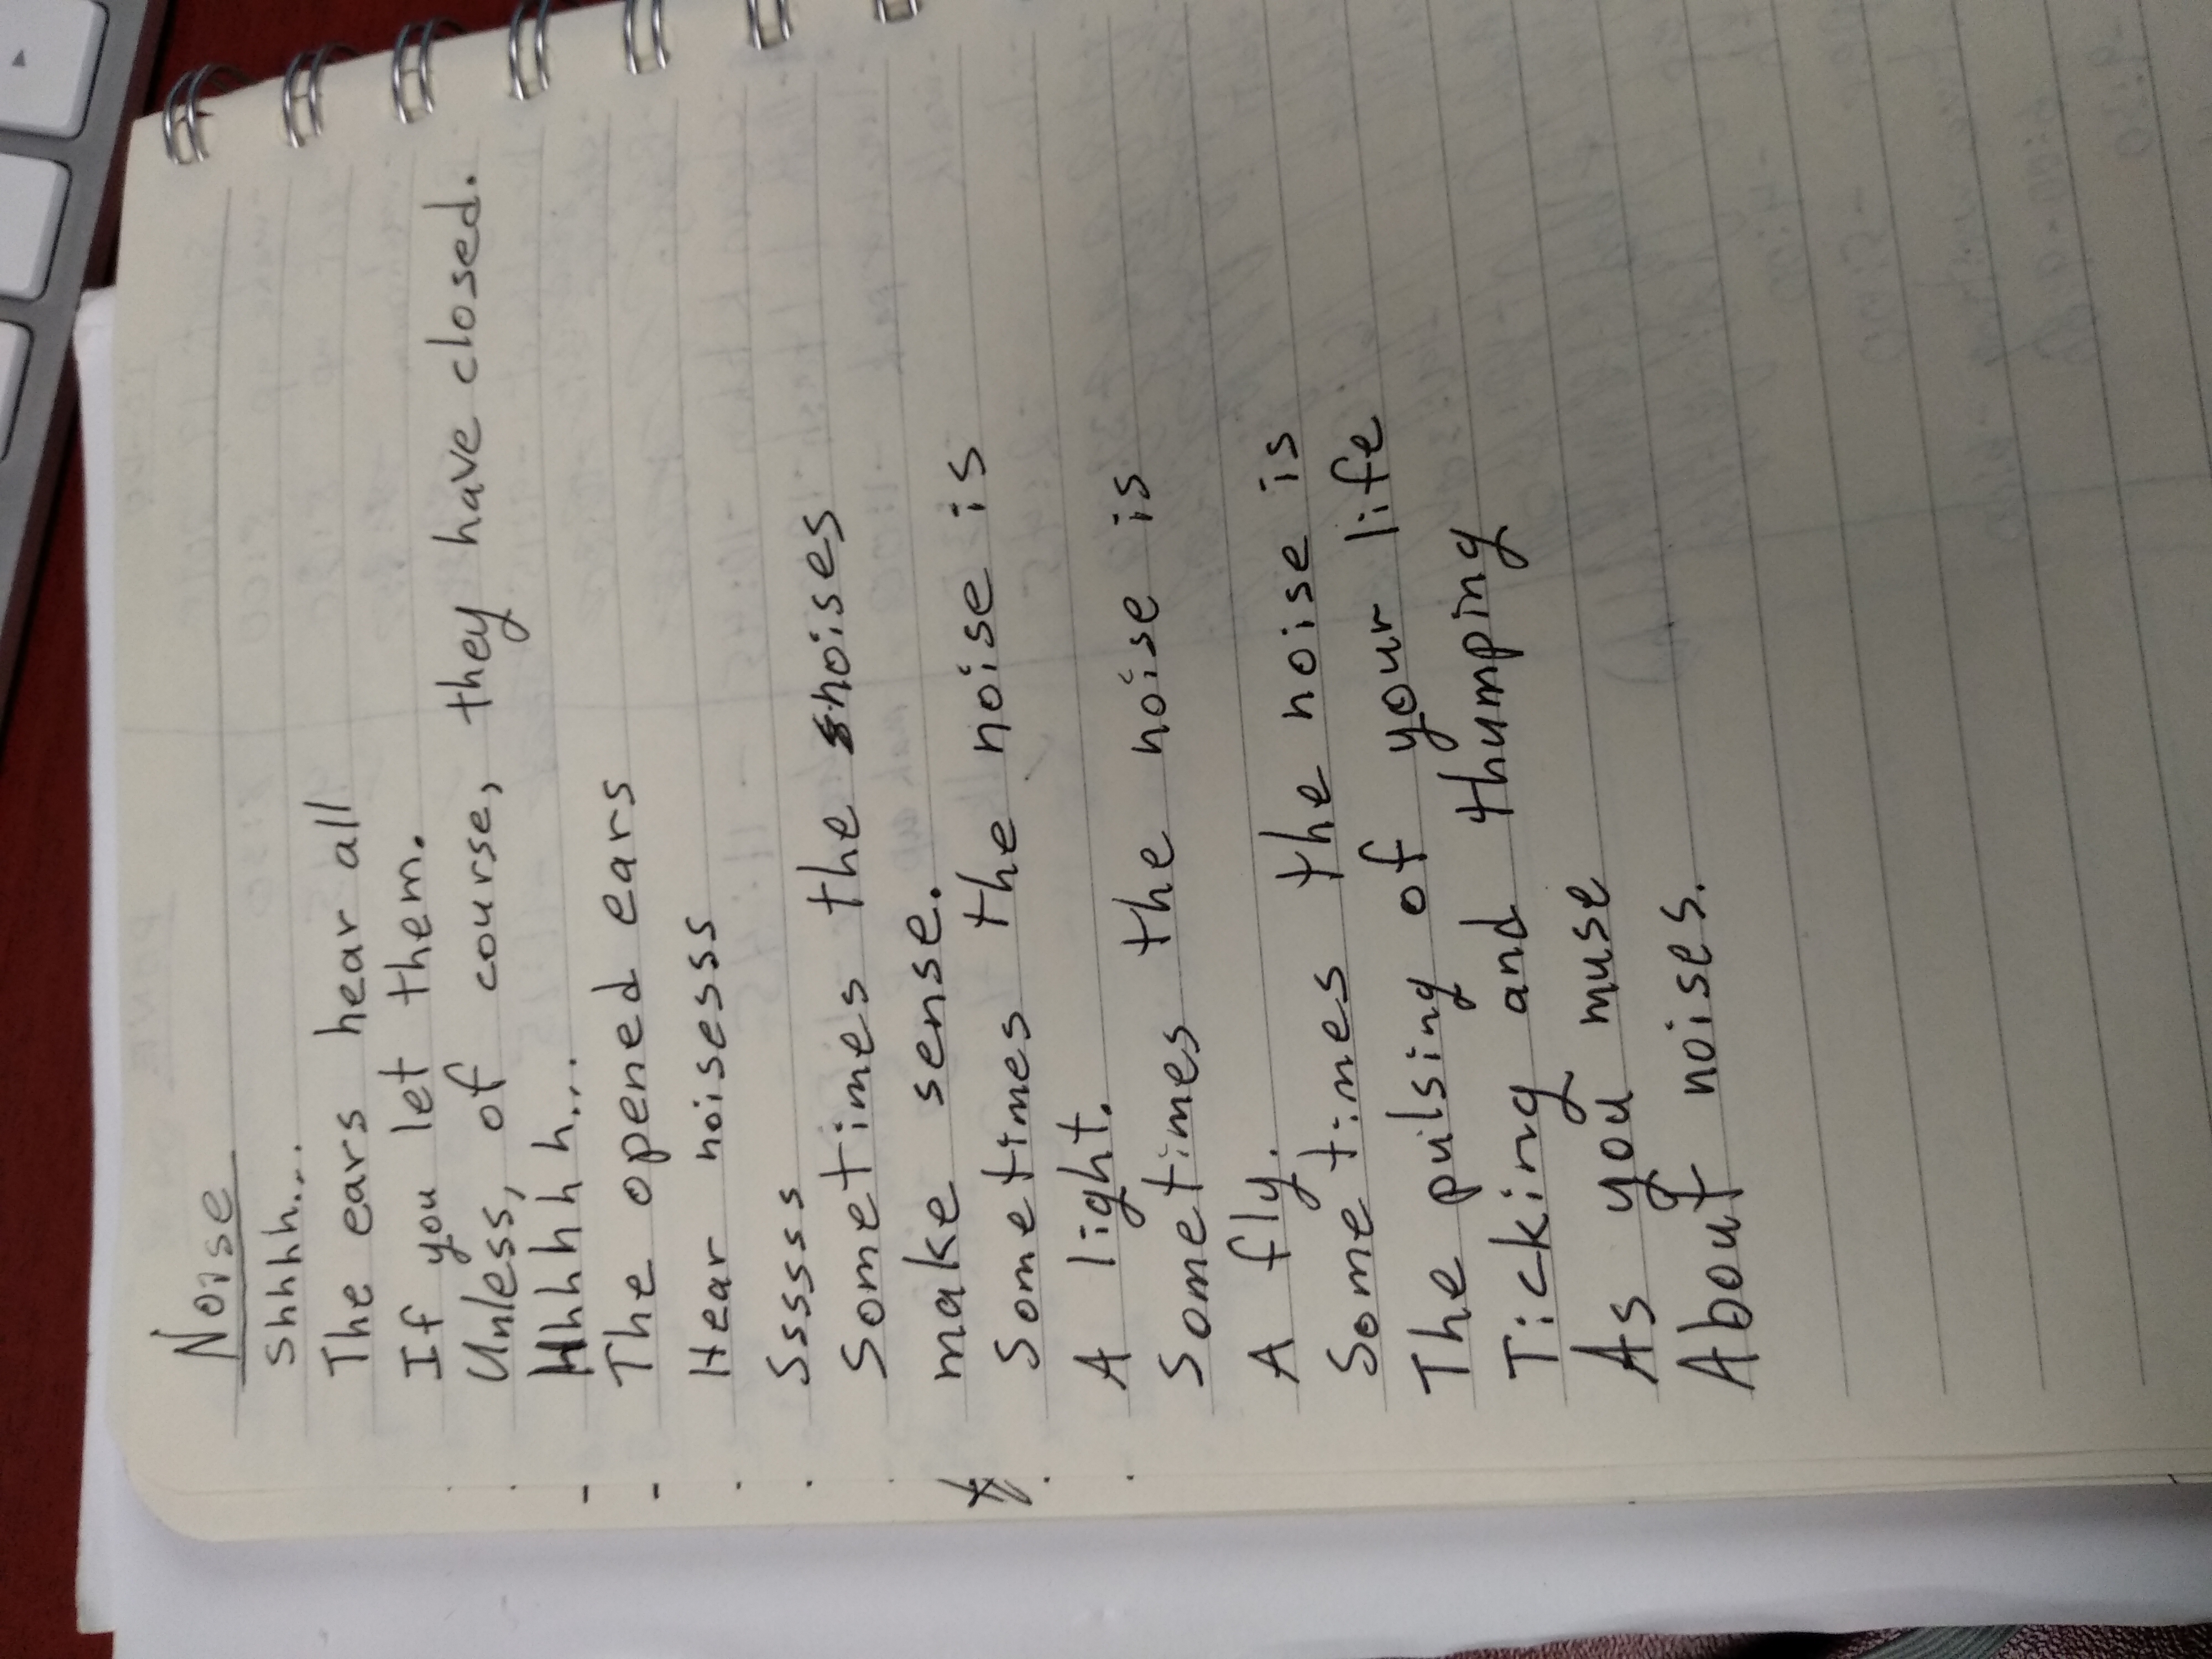 Noise
Shhhh...
The ears hear all
If you let them.
Unless, of course, they have closed.
Hhhhhh...
The opened ears
Hear noisesss
Ssssss
Sometimes the noises
make sense.
Sometimes the noise is
A light.
Sometimes the noise is
A fly.
Sometimes the noise is
The pulsing of your life
Ticking and thumping
As you muse
About noises.